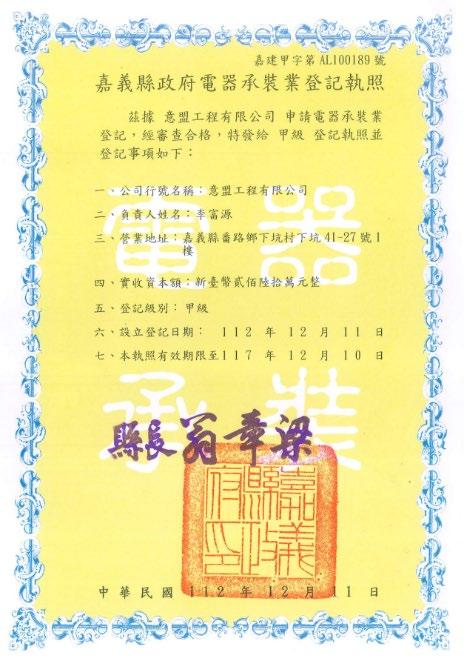 嘉建甲字第AL100189號
嘉義縣政府電器承裝業登記執照
茲據 意盟工程有限公司 申請電器承裝業
登記，經審查合格，特發給 甲級 登記執照並
登記事項如下：
一、公司行號名稱：意盟工程有限公司
二、負責人姓名：李富源
三、營業地址：嘉義縣番路鄉下坑村下坑41-27號1
樓
四、實收資本額：新臺幣貳佰陸拾萬元整
五、登記級別：甲級
六、設立登記日期： 112 年 12 月 11 日
七、本執照有效期限至117 年 12 月 10 日
電器
承裝
縣長 翁章梁
嘉義縣政府印
中華民國 112 年 12 月 11 日